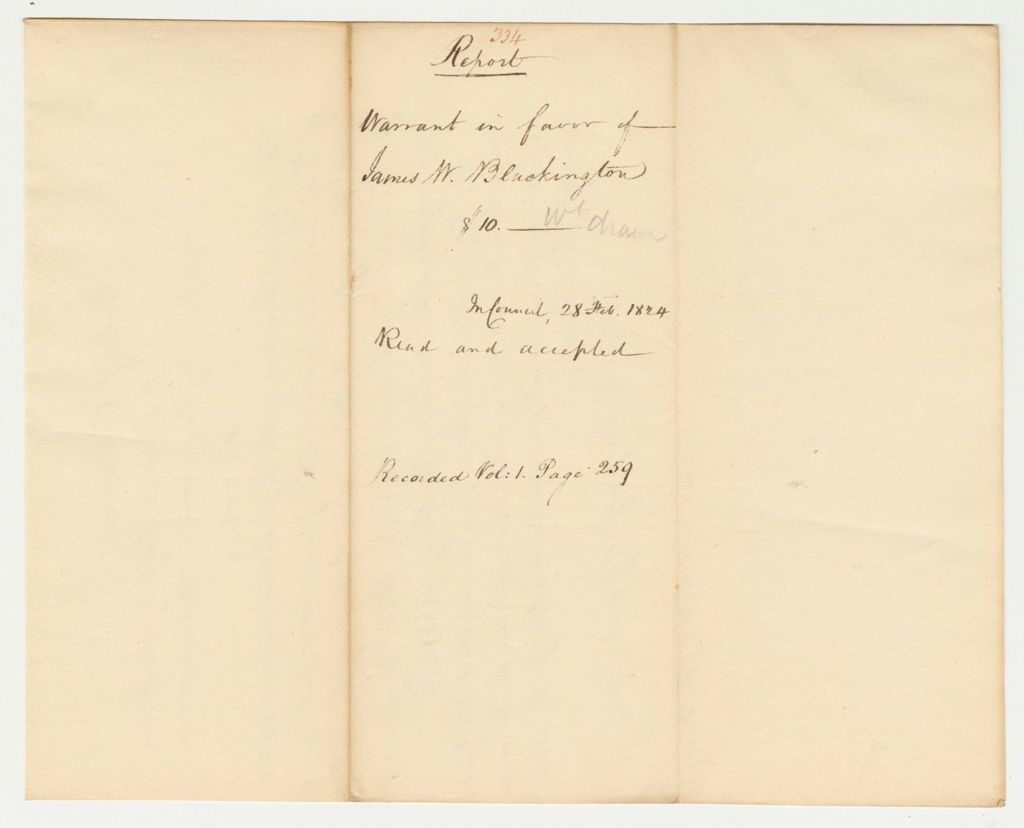 334
Report
Warrant in favor of
James W. Blackington
$10. Wt drawn
In Council, 28 Feb. 1824
Read and accepted
Recorded Vol: 1. Page 259